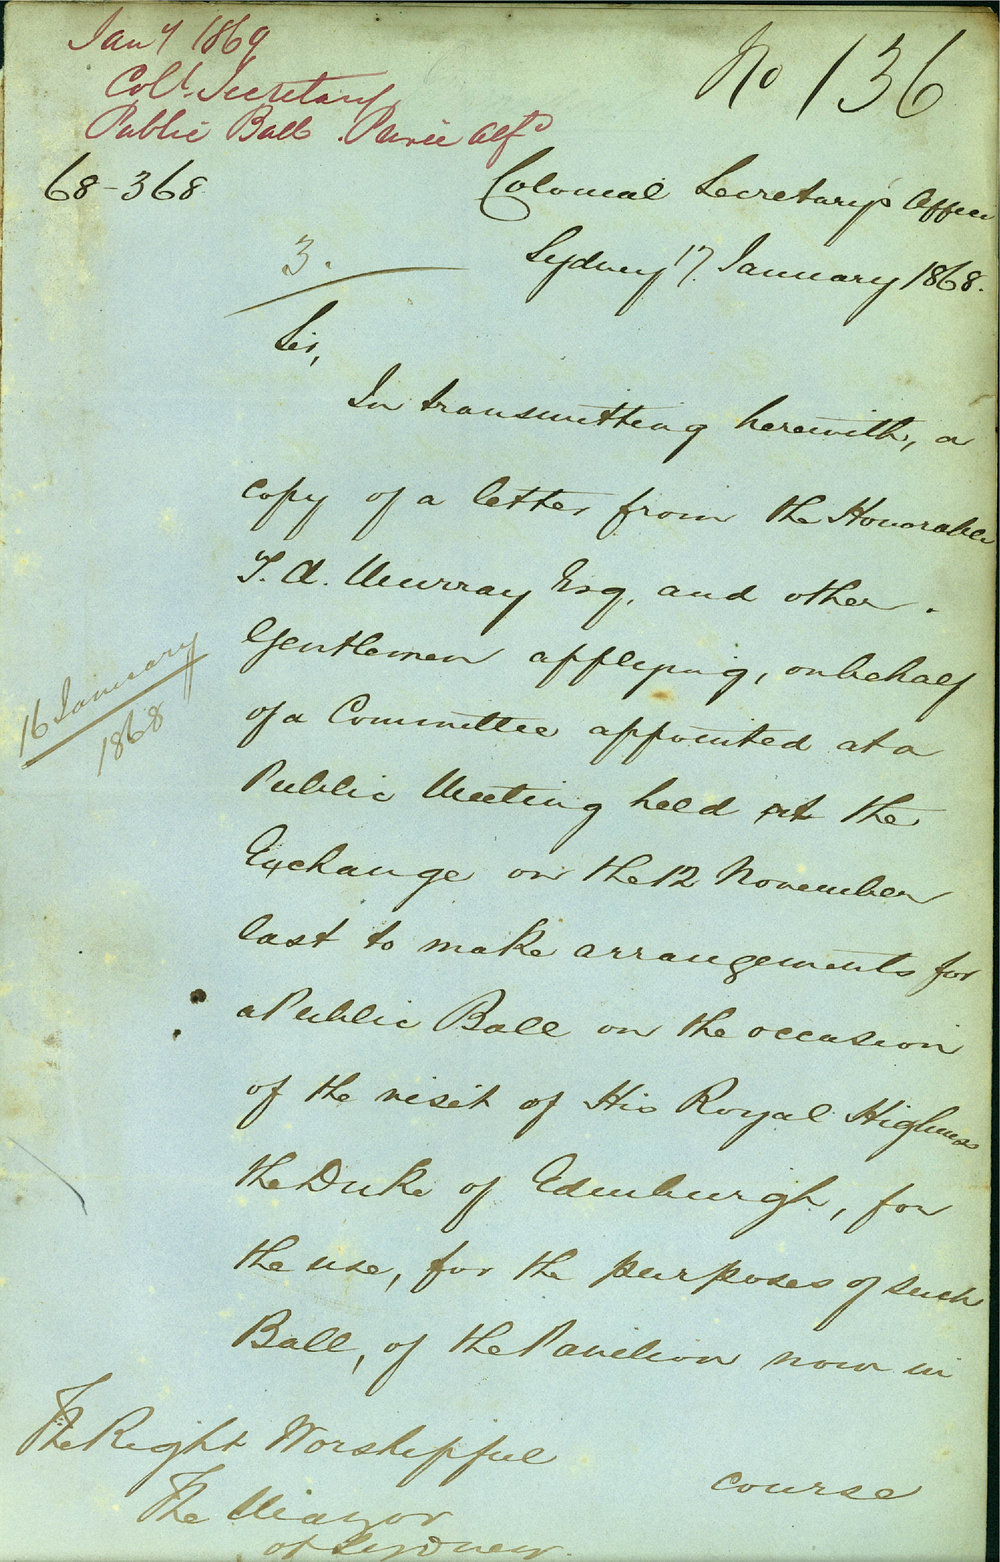 Jany 1869
Coll. Secretary
Public Ball. Prince Alfd
No 136
68-368
Colonial Secretary's Office
Sydney 17 January 1868.
3.
Sir,
In transmitting herewith, a
copy of a letter from the Honorable
T. A. Murray Esq, and other
Gentlemen applying, on behalf
of a Committee appointed at a
Public Meeting held at the
Exchange on the 12 November
last to make arrangements for
a Public Ball on the occasion
of the visit of His Royal Highness
the Duke of Edinburgh, for
the use, for the purposes of such
Ball, of the Pavilion now in
16 January
1868
The Right Worshipful
The Mayor
of Sydney.
course